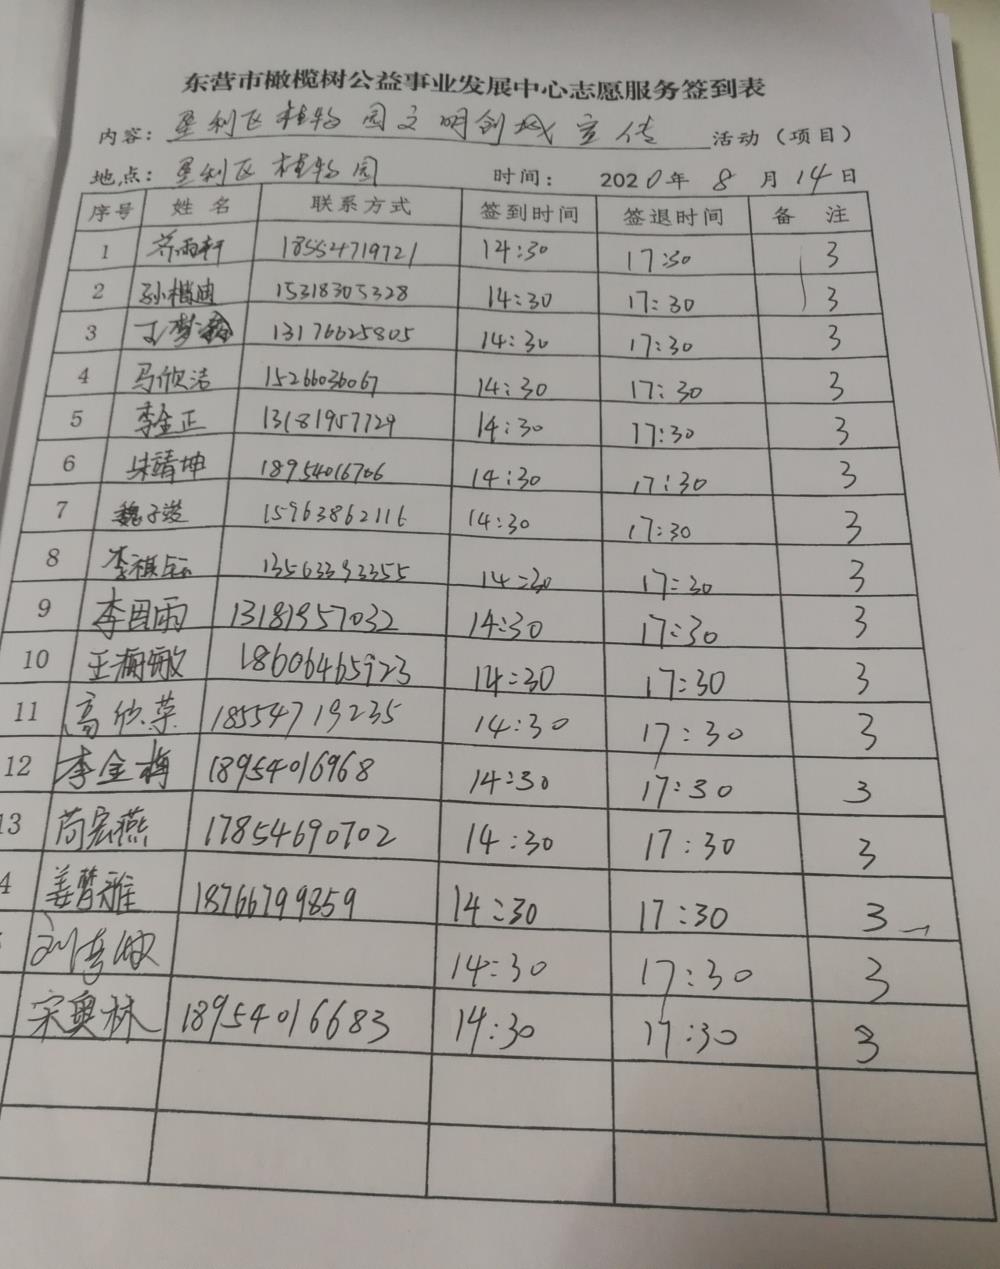 东营市橄榄树公益事业发展中心志愿服务签到表
内容: 垦利区植物园文明创城宣传 活动（项目）
地点: 垦利区植物园 时间: 2020年 8 月 14 日
序号 姓 名 联系方式 签到时间 签退时间 备 注
1 齐雨轩 18554719721 14:30 17:30 3
2 孙楷迪 15318305328 14:30 17:30 3
3 13176625805 14:30 17:30 3
4 马欣洁 15266036067 14:30 17:30 3
5 李金正 13181957729 14:30 17:30 3
6 朱靖坤 18954016706 14:30 17:30 3
7 魏子璇 15963862116 14:30 17:30 3
8 李祺 13563393355 14:30 17:30 3
9 李因雨 13181957032 14:30 17:30 3
10 王梅敏 18606465923 14:30 17:30 3
11 高欣荣 18554719235 14:30 17:30 3
12 李金梅 18954016968 14:30 17:30 3
13 苘宏燕 17854690702 14:30 17:30 3
4 姜梦雅 18766799859 14:30 17:30 3
刘 14:30 17:30 3
宋奥林 18954016683 14:30 17:30 3